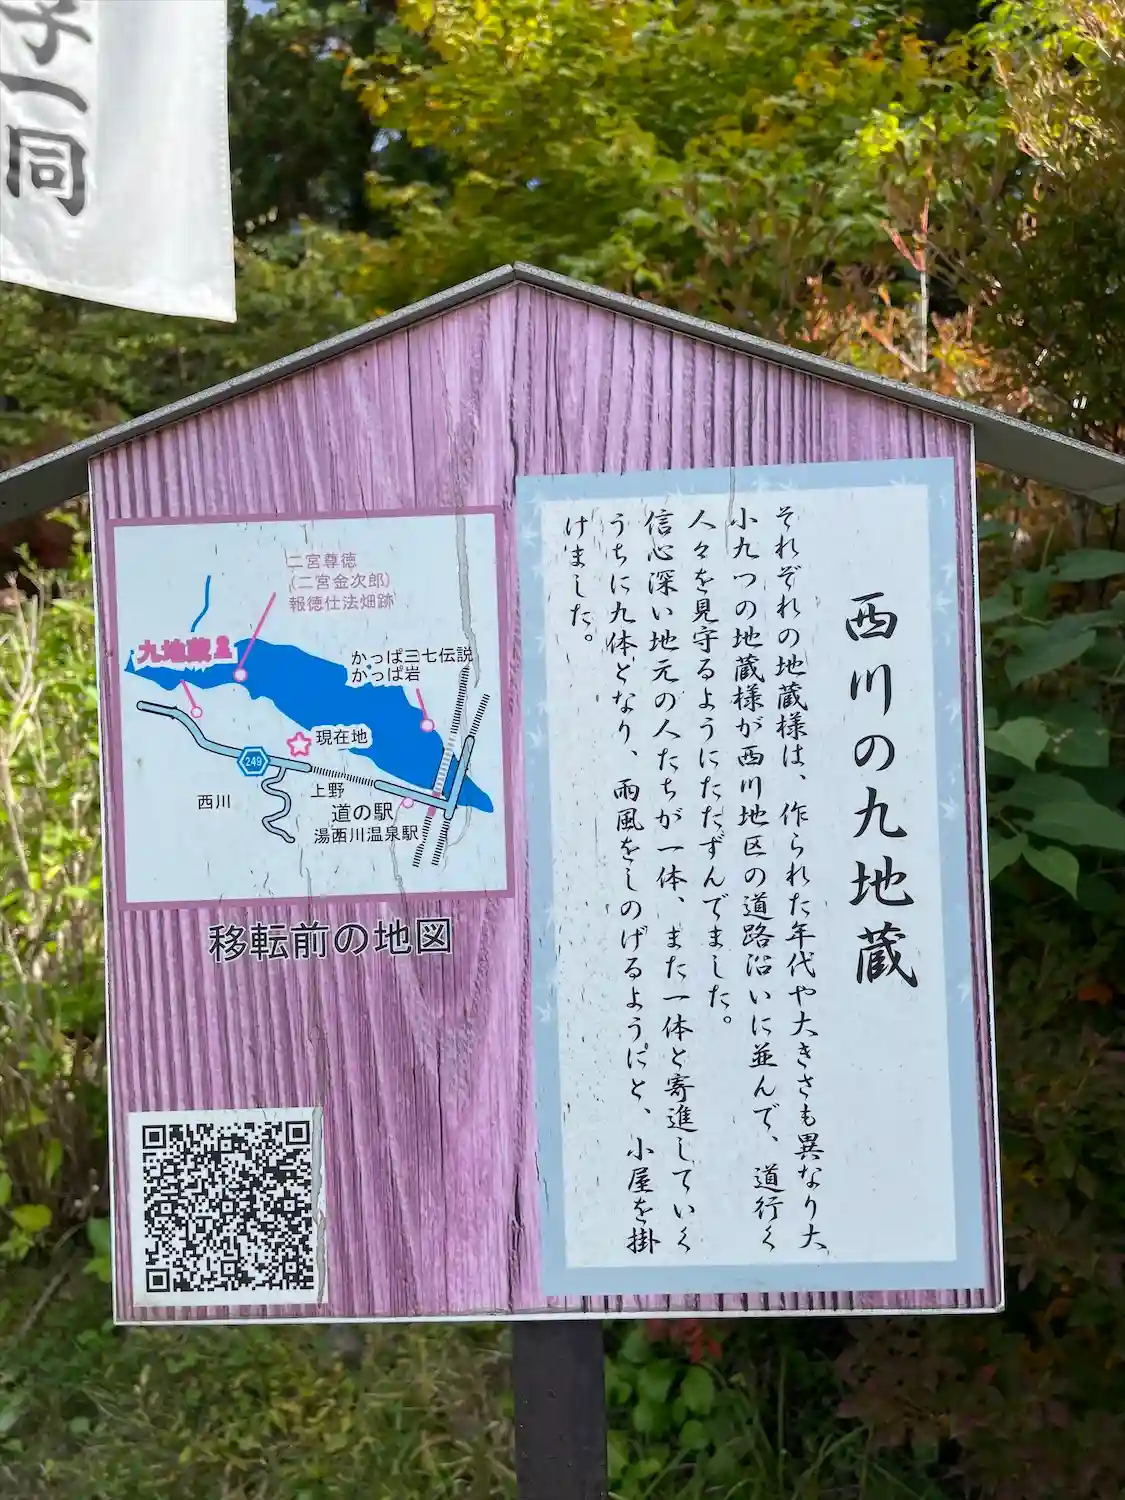 子一同
西川の九地蔵
それぞれの地蔵様は、作られた年代や大きさも異なり大
小九つの地蔵様が西川地区の道路沿いに並んで、道行く
人々を見守るようにたたずんでました。
信心深い地元の人たちが一体、また一体と寄進していく
うちに九体となり、雨風をしのげるようにと、小屋を掛
けました。
二宮尊徳
(二宮金次郎)
報徳仕法畑跡
九地蔵
かっぱ三七伝説
かっぱ岩
現在地
249
上野
西川
道の駅
湯西川温泉駅
移転前の地図